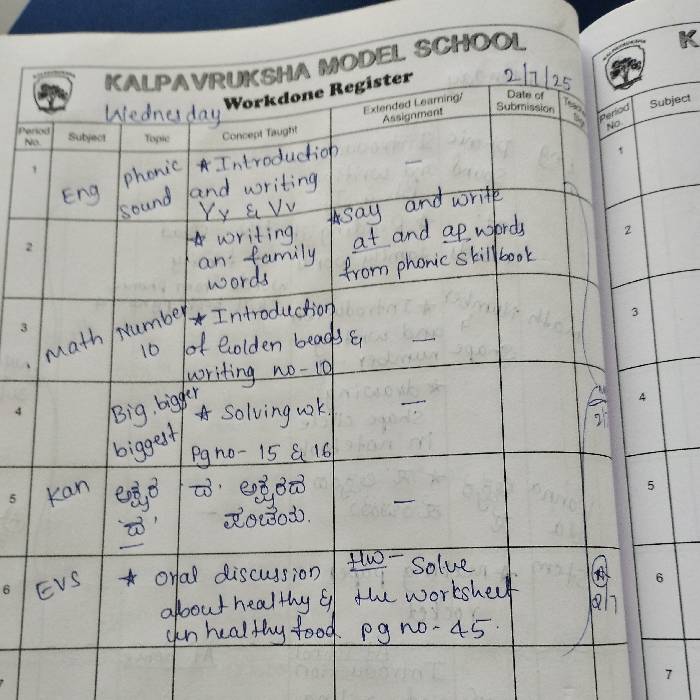 KALPAVRUKSHA MODEL SCHOOL
Wednesday
Workdone Register
2/7/25
Period No.
Subject
Topic
Concept Taught
Extended Learning/ Assignment
Date of Submission
1
Eng
phonic
sound
★ Introduction
and writing
Yy & Vv
—
2
★ writing
an: family
words
★Say and write
at and ap words
from phonic skillbook
3
Math
Number
10
★ Introduction
of Golden beads &
writing no-10
—
4
Big, bigger
biggest
★ Solving wk.
Pg no- 15 & 16
—
5
Kan
ಅಕ್ಷರ
ಅಕ್ಷರದ
—
6
EVS
★ Oral discussion
about healthy &
un healthy food
HW- Solve
the worksheet
pg no- 45.
2/7
K
Period No.
Subject
1
2
3
4
5
6
7